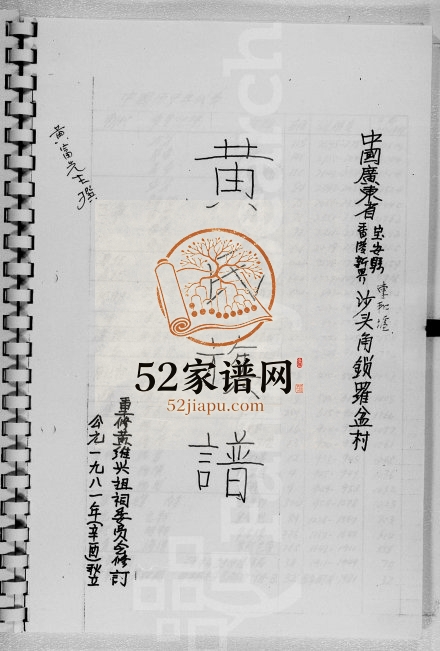 中國廣東省
宝安縣
香港新界
沙头角鎖羅盆村
黄
氏
族
譜
52家谱网
52jiapu.com
重修黄維兴祖祠委员会修訂
公元一九八一年(辛酉)秋立